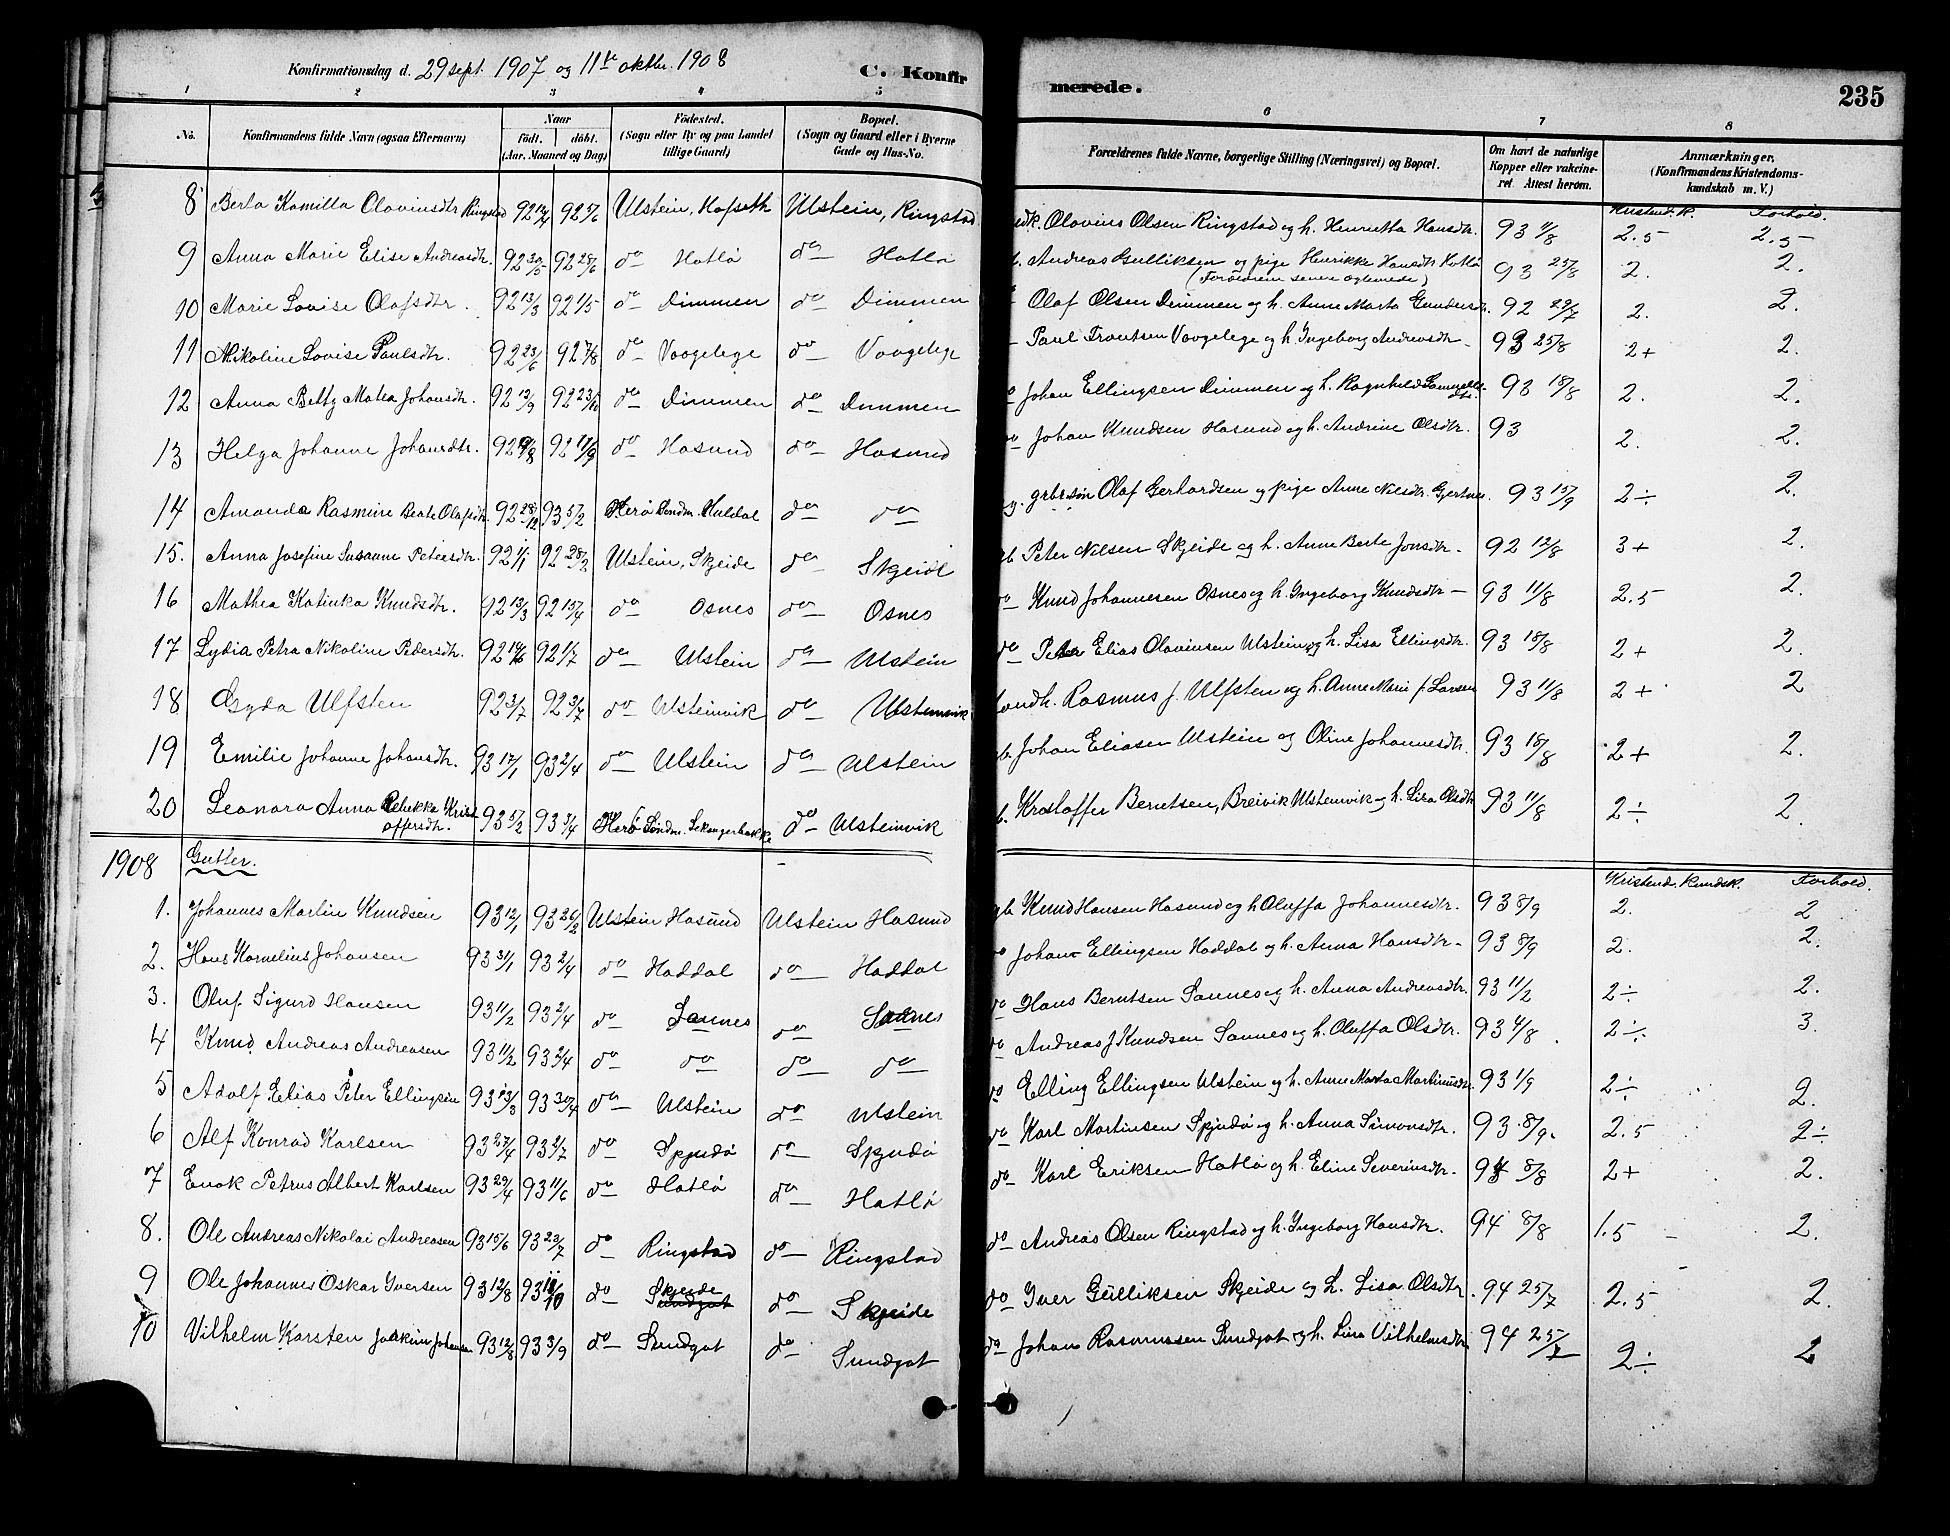 Konfirmationsdag d. 29 sept. 1907 og 11te oktbr. 1908 C. Konfirmerede. 235
1 2 3 4 5 6 7 8
No. Konfirmandens fulde Navn (ogsaa Efternavn) Naar født. døbt. (Aar, Maaned og Dag) Fødested. (Sogn eller By og paa Landet tillige Gaard) Bopæl. (Sogn og Gaard eller i Byerne Gade og Hus-No. Forældrenes fulde Navne, borgerlige Stilling (Næringsvei) og Bopæl. Om havt de naturlige Kopper eller vakcineret. Attest herom. Anmærkninger. (Konfirmandens Kristendomskundskab m. V.)
Kristend. K. Forhold.
8 Berta Kamilla Olavinsdtr Ringstad 92 92 5/6 Ulstein, Hofseth Ulstein, Ringstad Olavius Olsen Ringstad og h. Henrietta Hansdtr. 93 2.5 2.5
9 Anna Marie Elise Andreasdtr. 92 30/5 92 28/6 do Hatlø do Hatlø Andreas Gulliksen og pige Henrikke Hansdtr Hatlø 93 25/8 2. 2.
(Forældrene senere egteviede)
10 Marie Lovise Olafsdtr. 92 13/3 92 1/5 do Dimmen do Dimmen Olaf Olsen Dimmen og h. Anne Marta Gundersdtr. 92 29/7 2. 2.
11 Nikoline Lovise Paulsdtr. 92 23/6 92 7/8 do Vaagelege do Vaagelege Paul Knutsen Vaagelege og h. Ingeborg Andreasdtr 93 25/8 2+ 2.
12 Anna Beltz Matea Johansdtr. 92 13/9 92 23/10 do Dimmen do Dimmen do Johan Ellingsen Dimmen og h. Ragnhild Samuelsdtr. 93 18/8 2. 2.
13 Helga Johanne Johansdtr. 92 92 11/9 do Hasund do Hasund do Johan Knudsen Hasund og h. Andrine Olsdtr. 93 2. 2.
14 Amanda Rasmine Beate Olafsdtr. 92 28/12 93 5/2 Herø Søndm. Huldal do do grbr. søn Olaf Gerhardsen og pige Anne Nilsdtr. Gjertnes. 93 15/9 2÷ 2.
15. Anna Josefine Susanne Petersdtr. 92 1/1 92 28/2 Ulstein, Skjeide do Skjeide Peter Nilsen Skjeide og h. Anne Berte Jonsdtr. 92 12/8 3+ 2.
16 Mathea Katinka Knudsdtr. 92 13/3 92 15/4 do Osnes do Osnes do Knud Johannesen Osnes og h. Ingeborg Knudsdtr 93 11/8 2.5 2.
17 Lydia Petra Nikoline Pedersdtr. 92 92 1/7 do Ulstein do Ulstein do Peter Elias Olavinsen Ulstein og h. Lisa Ellingsdtr. 93 18/8 2+ 2.
18 Gyda Ulfsten 92 3/7 92 do Ulsteinvik do Ulsteinvik Landh. Rasmus J. Ulfsten og h. Anne Marie f. Larsen 93 11/8 2+ 2
19 Emilie Johanne Johansdtr. 93 17/1 93 2/4 do Ulstein do Ulstein Johan Eliasen Ulstein og Oline Johannesdtr. 93 18/8 2+ 2.
20 Leonara Anna Rebekka Kristoffersdtr. 93 5/2 93 3/4 Herø Søndm. do Ulsteinvik Kristoffer Berntsen, Breivik Ulsteinvik og h. Lisa Olsdtr 93 11/8 2÷ 2.
1908 Gutter. Kristend. Kundsk. Forhold.
1. Johannes Martin Knudsen 93 12/1 93 26/2 Ulstein Hasund Ulstein Hasund Knud Hansen Hasund og h Oluffa Johannesdtr. 93 8/9 2. 2
2. Hans Kornelius Johansen 93 31/1 93 2/4 do Haddal do Haddal do Johan Ellingsen Haddal og h. Anna Hansdtr. 93 8/9 2. 2.
3. Oluf Sigurd Hansen 93 11/2 93 2/4 do Saunes do Saunes do Hans Berntsen Saunes og h. Anna Andreasdtr. 93 11/2 2÷ 2.
4 Knud Andreas Andreasen 93 11/2 93 2/4 do do do do do Andreas J Knudsen Saunes og h. Oluffa Olsdtr. 93 4/8 2÷ 3.
5 Adolf Elias Peter Ellingsen 93 13/3 93 30/4 do Ulstein do Ulstein do Elling Ellingsen Ulstein og h. Anne Marta Martinusdtr. 93 1/9 2÷ 2.
6 Alf Konrad Karlsen 93 27/4 93 2/7 do Spjudø do Spjudø do Karl Martinsen Spjudø og h. Anna Simonsdtr. 93 8/9. 2.5 2÷
7 Enok Petrus Albert Karlsen 93 29/4 93 11/6 do Hatlø do Hatlø do Karl Eriksen Hatlø og h. Eline Severinsdtr. 94 8/8 2+ 2.
8. Ole Andreas Nikolai Andreasen 93 15/6 93 23/7 do Ringstad do Ringstad do Andreas Olsen Ringstad og h. Ingeborg Hansdtr. 94 8/8 1.5 2.
9 Ole Johannes Oskar Iversen 93 12/8 93 do Skjeide do Skjeide do Iver Gulliksen Skjeide og h. Lisa Olsdtr. 94 25/7 2.5 2.
10 Vilhelm Karsten Joakim Johansen 93 12/8 93 3/9 do Sundgot do Sundgot do Johan Rasmussen Sundgot og h. Lina Vilhelmsdtr 94 25/7 2÷ 2